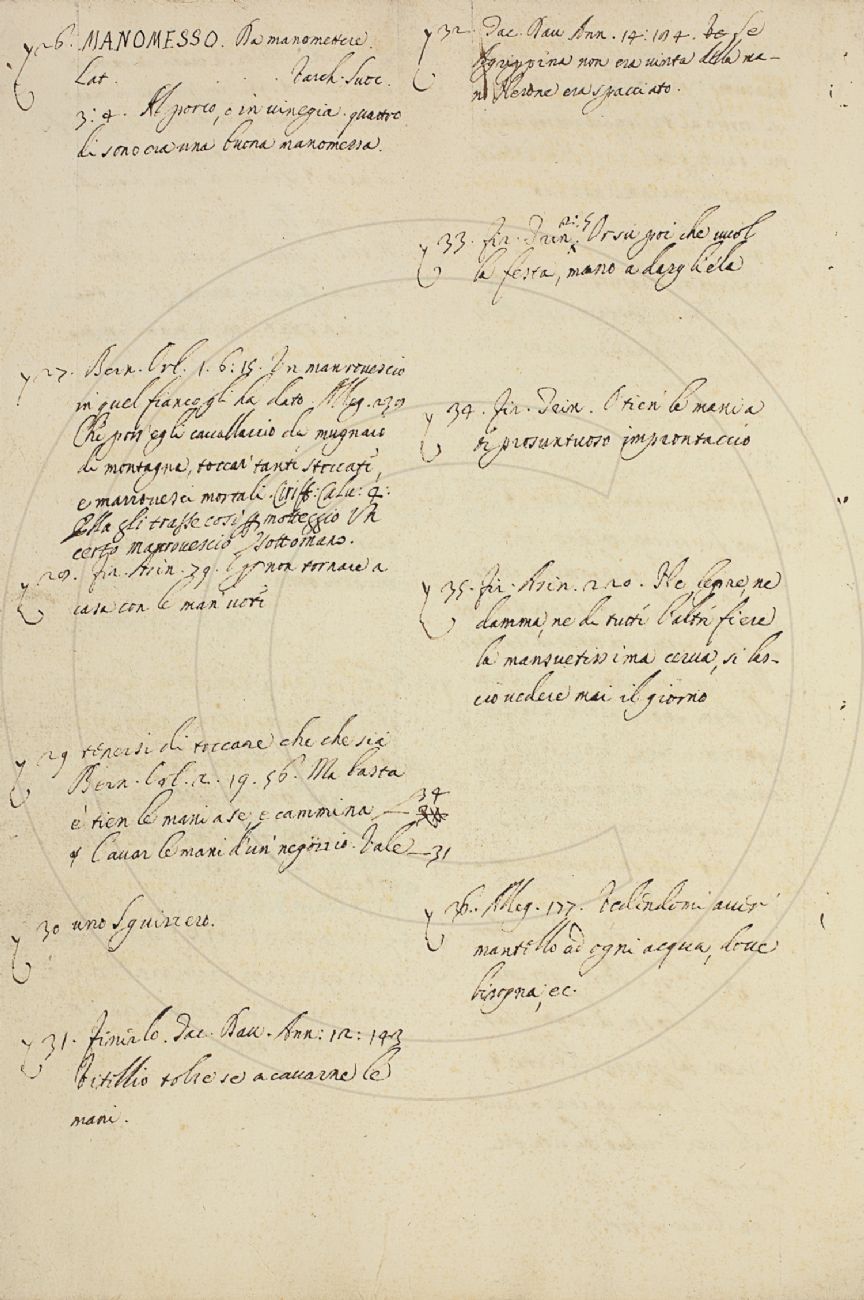 26. MANOMESSO. Da manomettere.
Lat. . . . Varch. Suoc.
3: 4. Al porco, o in vinegia quattro
di sono era una buona manomessa.
27. Bern. Orl. 1. 6: 15. Un manrovescio
in quel fianco gli da dato. Alleg. 239
Che poss' egli cavallaccio da mugnaio
di montagna, toccar tanti stoccate,
e manrovesci mortali. Ciriff: Calv: 4:
Ella gli trasse così motteggio un
certo manrovescio sottomano.
28. Fir. Asin. 79. non tornare a
casa con le man' voti
29 tenersi di toccare che che sia
Bern. Orl. 2. 19. 56. Ma basta
è tien le mani a se, e cammina 34
l'avar le mani d'un' negozio. Vale 31
30 uno Sguizzero.
31. Finirlo. Tac. Dav. Ann: 12: 143
Vitellio tolse se a cavarne le
mani.
32. Tac. Dav. Ann. 14: 184. se
Agrippina non era vinta della ma-
no Nerone era spacciato.
33. Fir. Trin. 2: 5 Orsu poi che vuol
la festa, mano a dargliela
34. Fir. Trin. O tien' le mani a
ti prosuntuoso improntaccio
35. Fir. Asin. 220. Ne, lepre, ne
damma, ne di tutti l'altri fiere
la mansuetissima cerva, si las-
ciò vedere mai il giorno
36. Alleg. 177. Vedendomi aver'
mantello ad ogni acqua, dove
bisogna, ec.